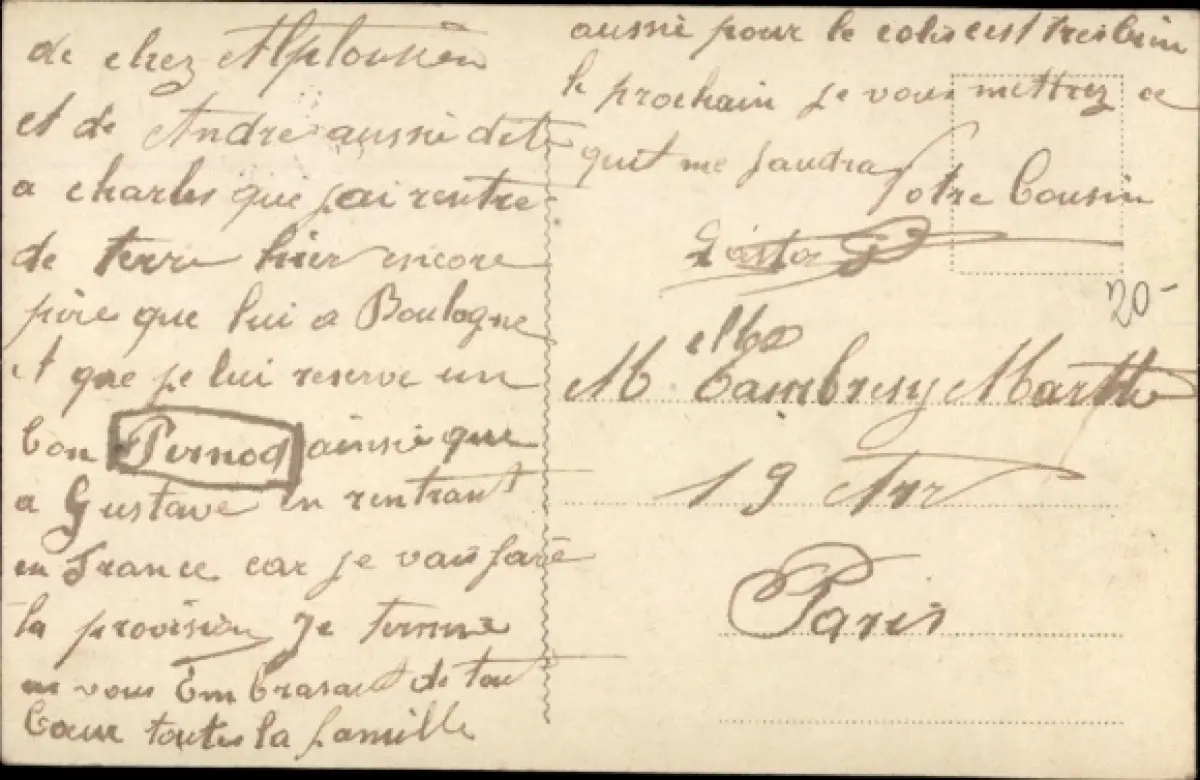 de chez Alplonsien
et de Andre aussie dite
a charles que jai rentre
de terre hier encore
pire que lui a Boulogne
et que je lui reserve un
bon Pernod ainsie que
a Gustave en rentrant
en France car je vais faire
la provision Je termine
en vous Embrasant de tout
Cœur toutes la famille
aussie pour le colis cest tres bien
le prochain je vous mettrez ce
quil me faudra
Votre Cousin
20-
Mlle
M Cambresy Marthe
19 Arr
Paris